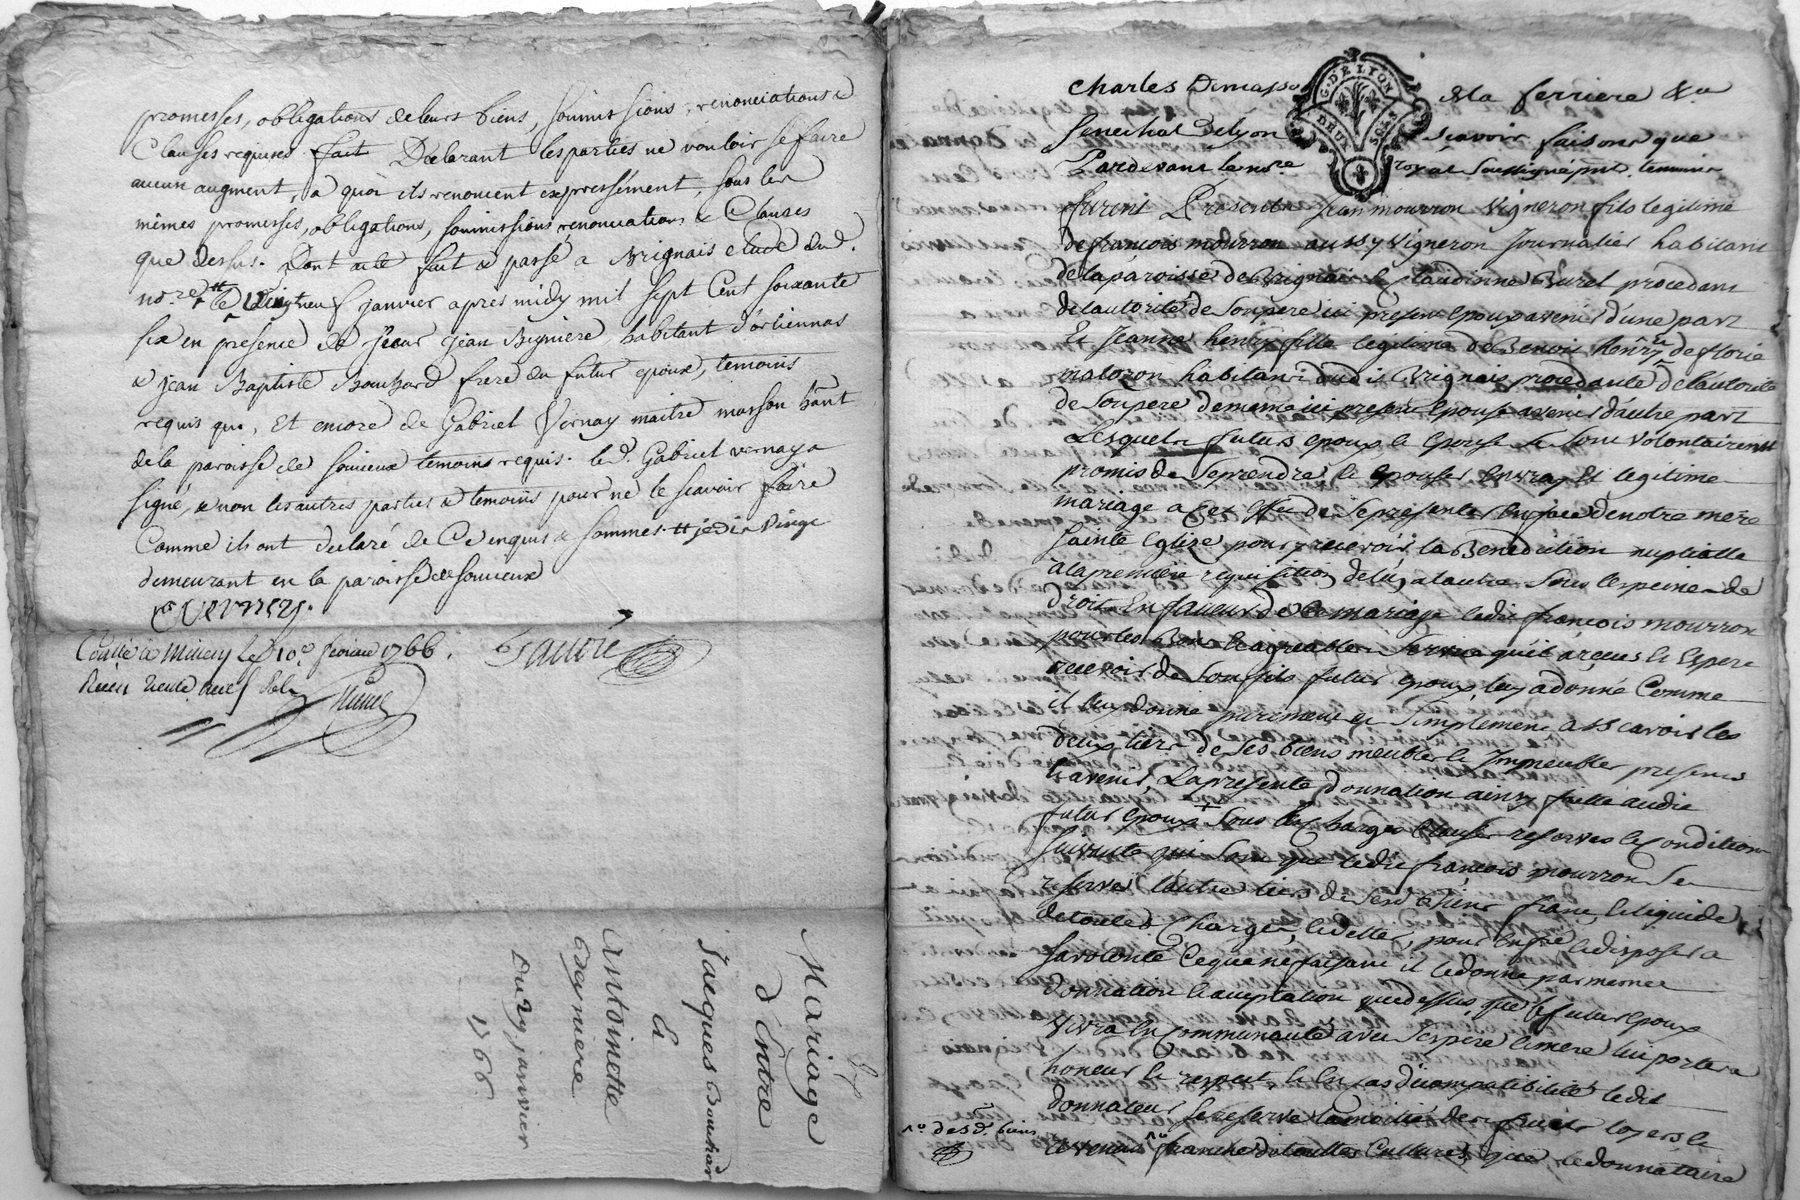 promesses, obligations de leurs biens, soumissions, renonciations &
Clauses requises fait Déclarant les parties ne vouloir se faire
aucun augment, a quoi ils renoncent expressément, sous les
mêmes promesses, obligations, soumissions, renonciations & Clauses
que dessus. Dont acte fait & passé a Brignais etude dud.
no.re le vingtneuf janvier apres midy mil sept Cent soixante
six en presence de sieur jean Bigniere, habitant d'orliennas
& jean Baptiste Bouchard frere du futur epoux, temoins
requis que, Et encore de Gabriel Vernay maitre masson hânt
de la paroisse de soucieux temoins requis. led. Gabriel vernay a
signé, & non les autres parties & temoins pour ne le scavoir faire
Comme ils ont declaré de Ce enquis & sommés
demeurant en la paroisse de soucieux
G vernay.
faurè
le 10e fevrier 1766.
Reçu trente neuf
Mariage
d'Entre
jacques Bouchard
&
antoinette
Bayniere
Du 29 janvier
1766
G. DE LYON
DEUX SOLS
Charles Demasso de la ferriere
senechal de lyon scavoir faisons que
Pardevant le nore royal soussigné pnt. temoins
furent Présents jean mourron vigneron fils legitime
de françois mourron aussy vigneron journalier habitant
de la paroisse de Brignais & claudinne Burel procedant
de lautorité de son pere ici present epoux avenir d'une part
Et jeanne henry fille legitime de Benoit henry & de florie
matozon habitant aud it Brignais procedante de lautorité
de son pere de meme ici present epouse avenir d'autre part
Lesquels futurs epoux & epouse se sont volontairemt
promis de se prendre & epouser en vray Et legitime
mariage a cet effet de se présenter en face de notre mere
sainte Eglise pour y recevoir la Benediction nuptialle
a la premiere requisition de l'un a l'autre sous les peines de
droit En faveur de Ce mariage ledit françois mourron
pour les Bons & agreables services qu'il a reçus & Espere
recevoir de son fils futur epoux, luy a donné Comme
il luy donne purement et simplement a scavoir les
deux tiers de ses biens meubles & jmmeubles presents
& avenir, La presente donnation ainsy faitte audit
futur epoux sous les charges clauses reserves & Conditions
suivante qui sont que ledit françois mourron se
reserve l'autre tiers de ses biens franc, & liquide
de toutes Charges, & dettes, pour En fre & disposer a
sa volonté Ce que ne faisant il le donne par meme
donnation & acceptation que dessus, que le futur epoux
vivra En Communauté avec ses pere & mere luy portera
honneur & respect & En cas d'incompatibilité ledit
donnateur se reserve la moitié des fruits loyers &
no. de sd. biens
revenus franche de touttes Cultures, que le donnataire